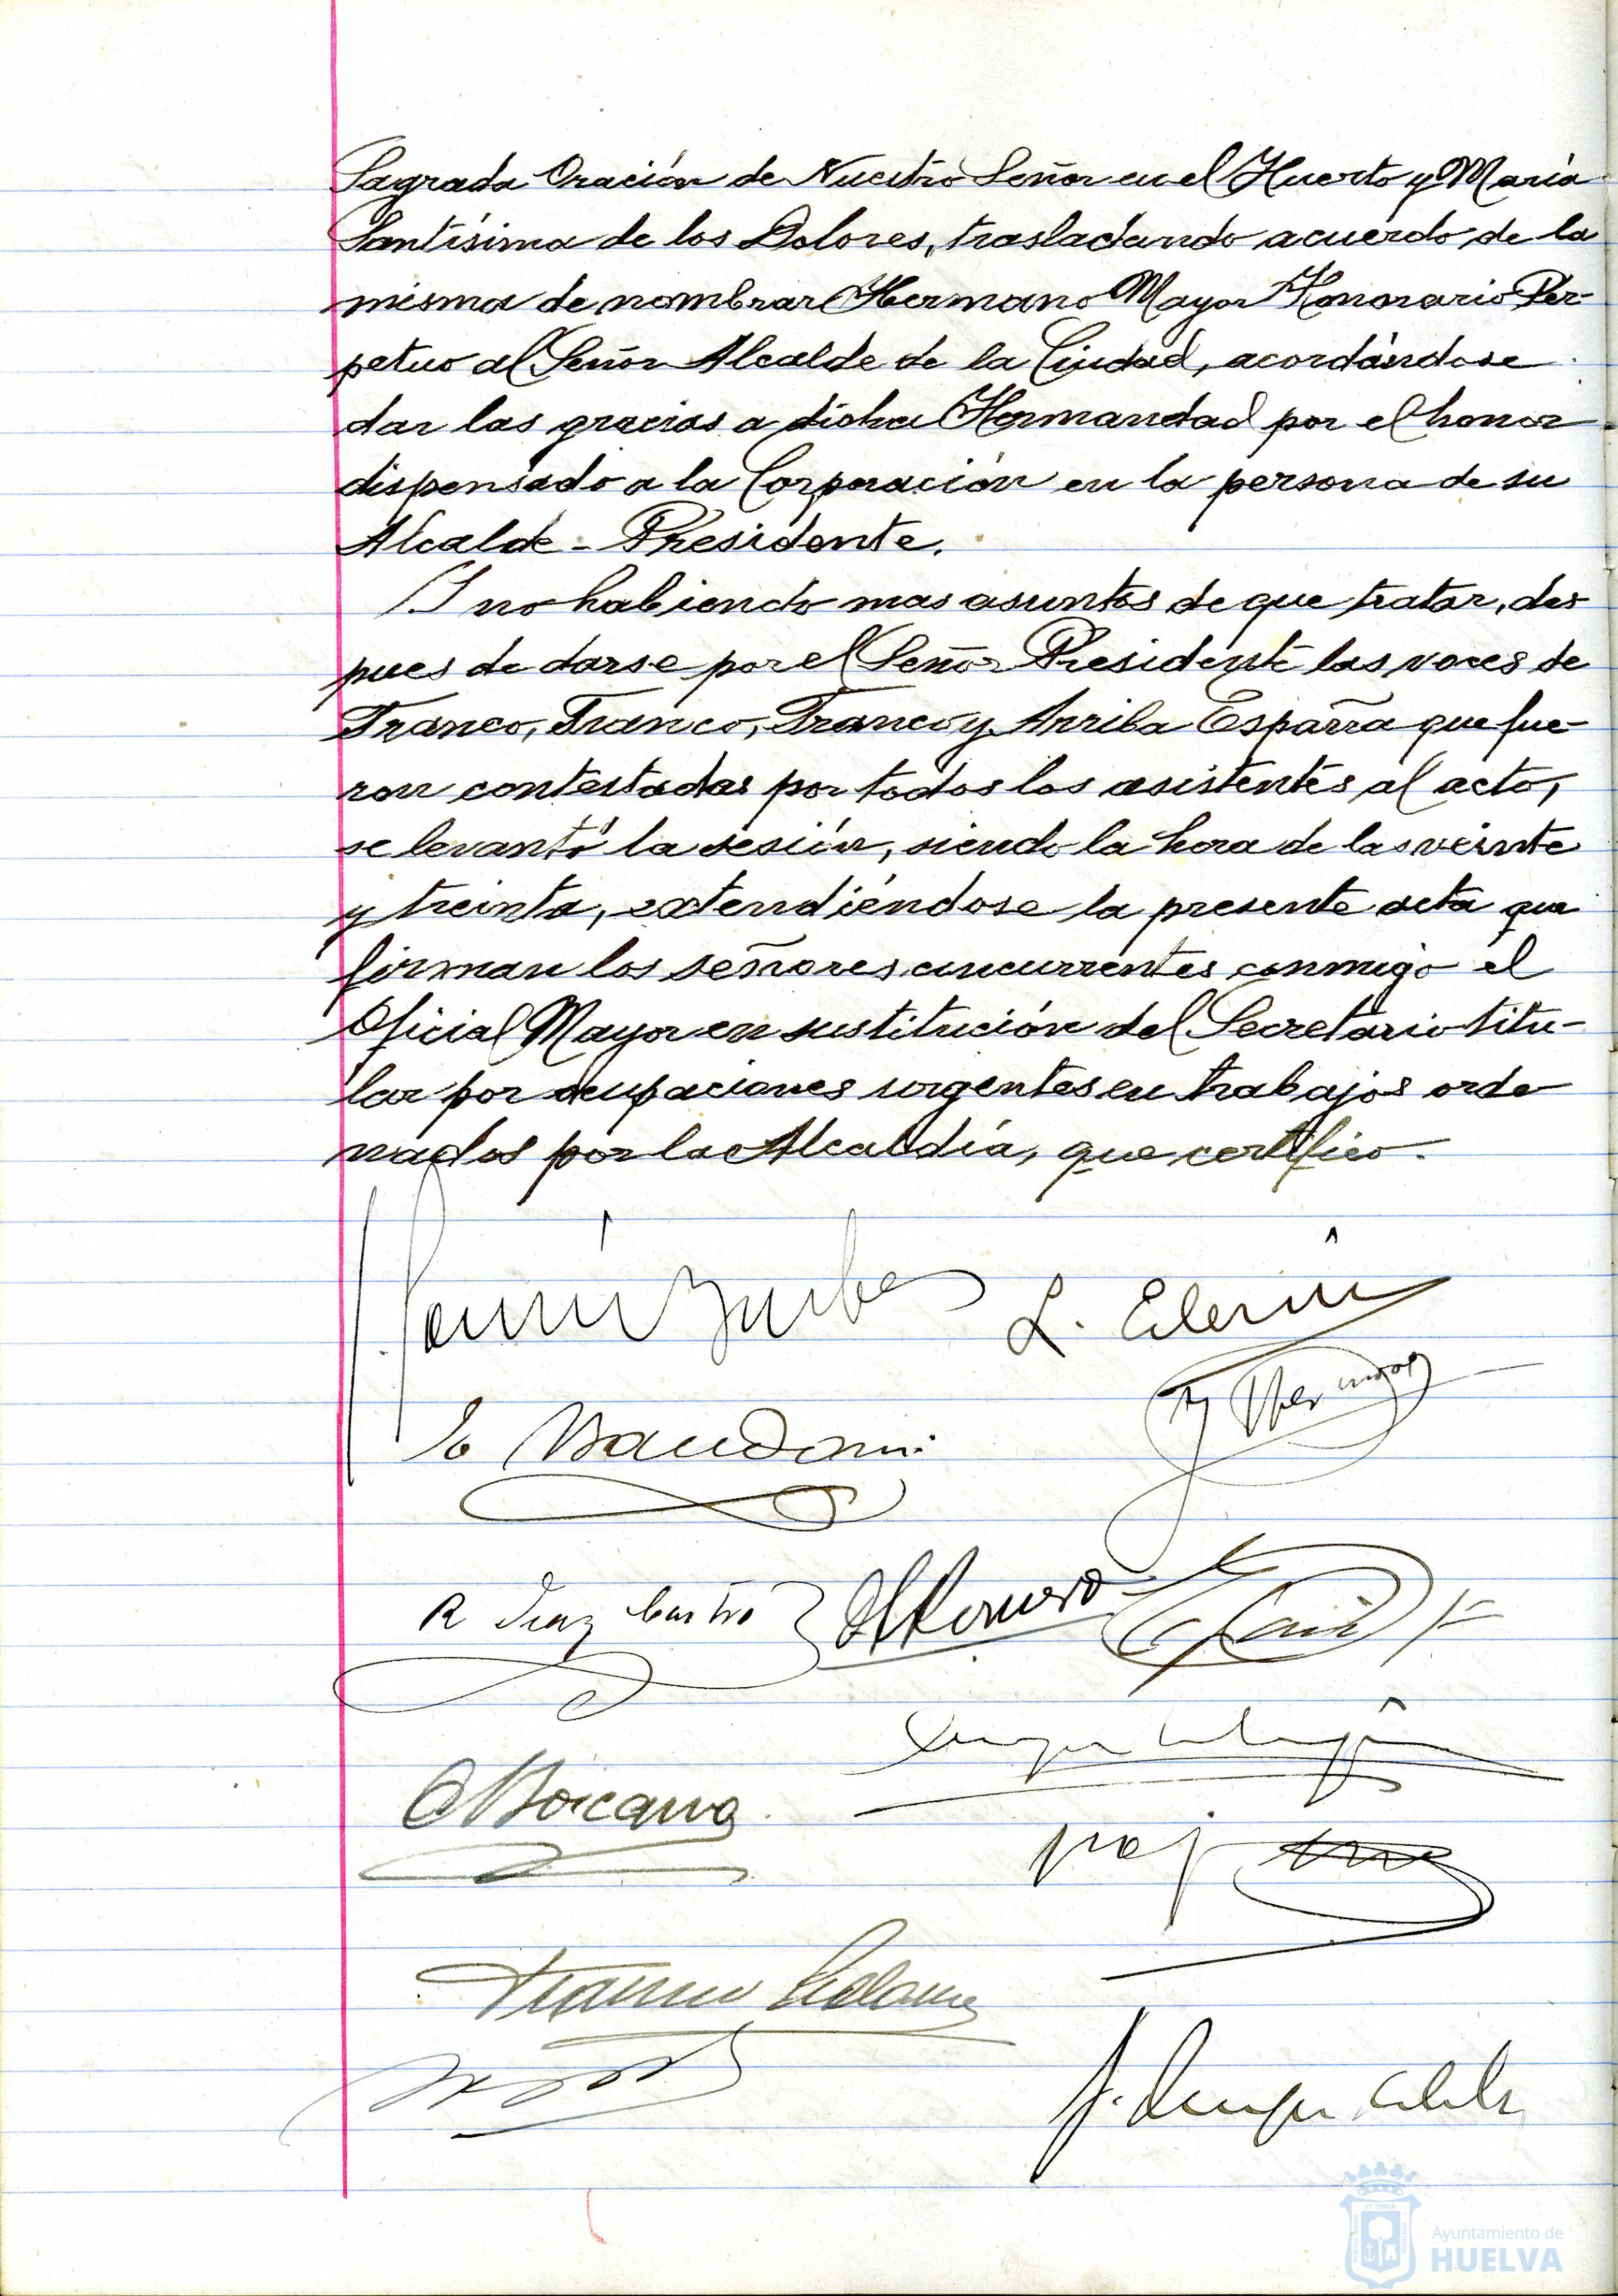 Sagrada Oración de Nuestro Señor en el Huerto y María
Santísima de los Dolores, trasladando acuerdo de la
misma de nombrar Hermano Mayor Honorario Per-
petuo al Señor Alcalde de la Ciudad, acordándose
dar las gracias a dicha Hermandad por el honor
dispensado a la Corporación en la persona de su
Alcalde-Presidente.
Y no habiendo mas asuntos de que tratar, des
pues de darse por el Señor Presidente las voces de
Franco, Franco, Franco y Arriba España que fue-
ron contestadas por todos los asistentes al acto,
se levantó la sesión, siendo la hora de las veinte
y treinta, extendiéndose la presente acta que
firman los señores concurrentes conmigo el
Oficial Mayor en sustitución del Secretario titu-
lar por ocupaciones urgentes en trabajos orde
nados por la Alcaldía, que certifico.
L.
R Diaz Castro
Romero
Ayuntamiento de
HUELVA